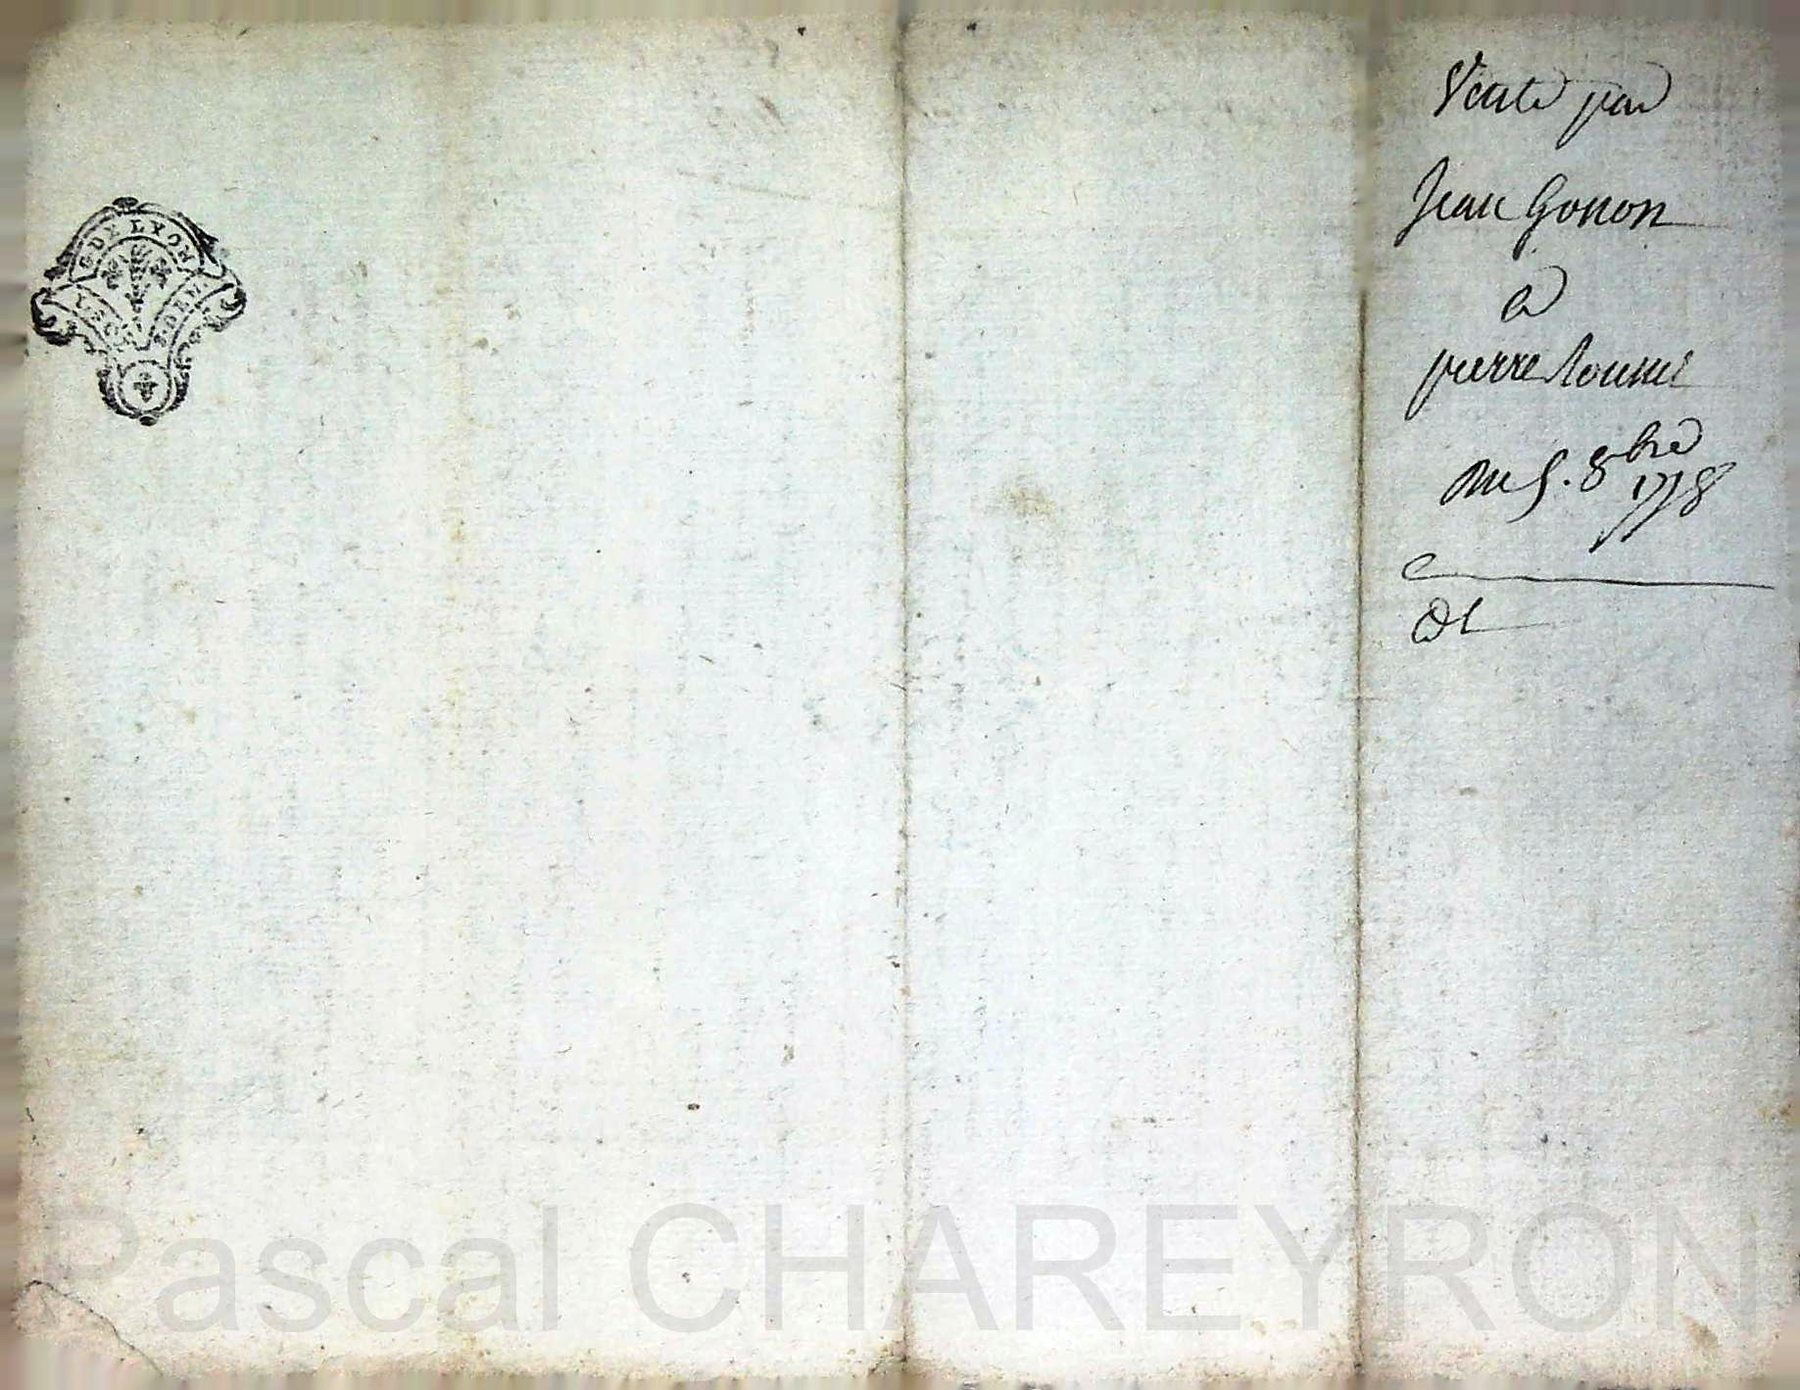 G. DE LYON
Vente par
Jean Gonon
a
pierre
Du 5. 8bre
1778
Pascal CHAREYRON